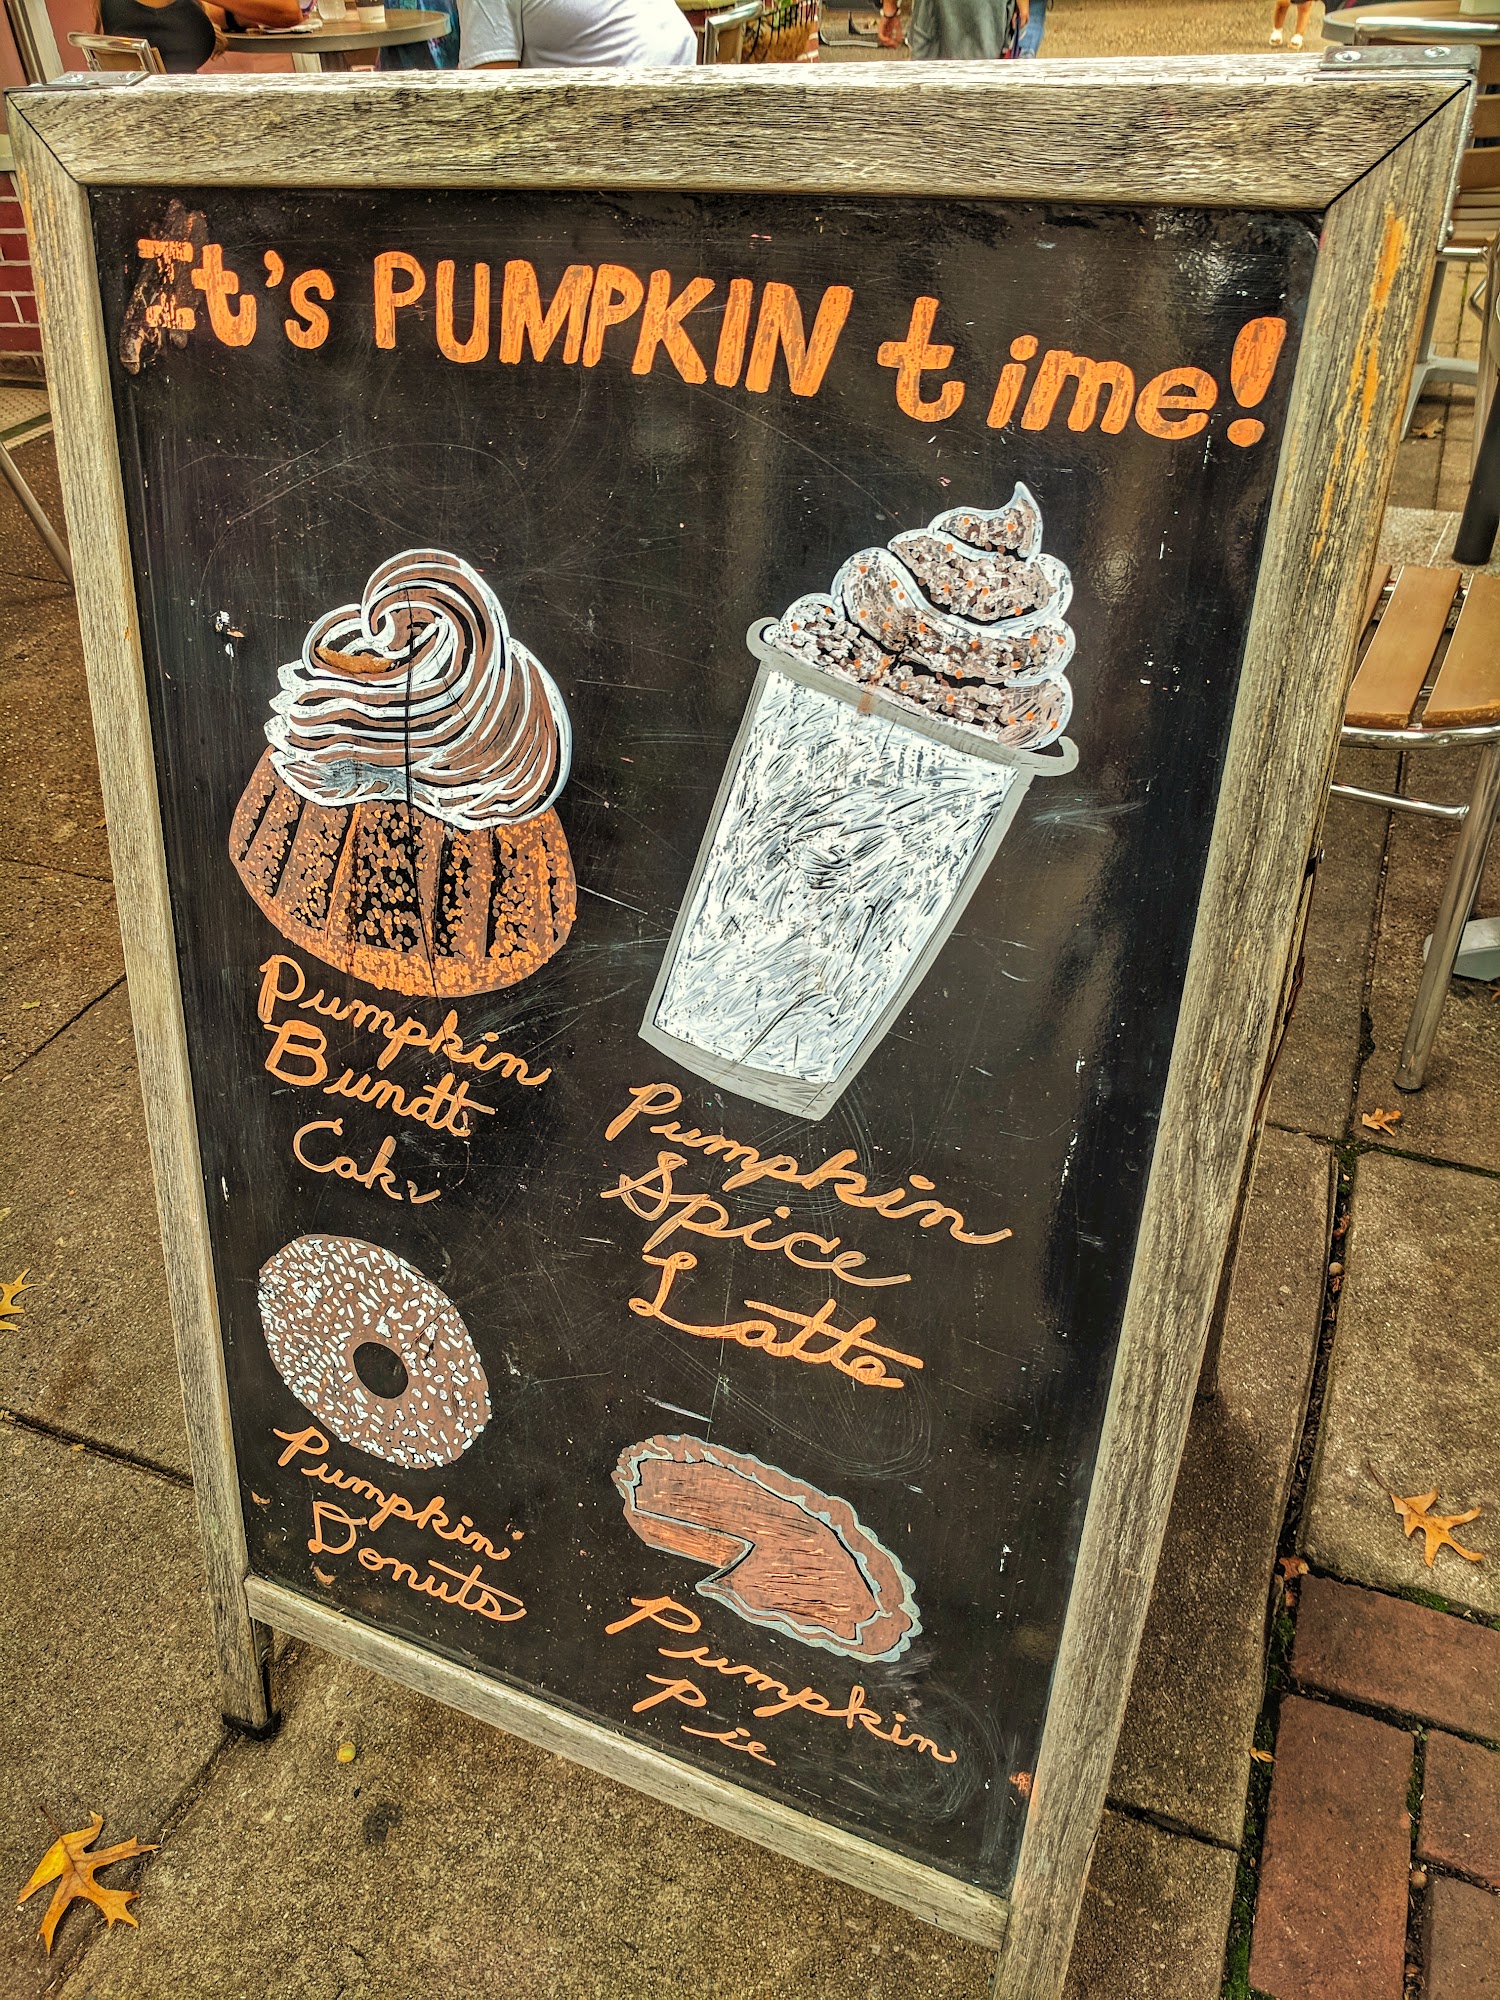 It's PUMPKIN time!
Pumpkin
Bundt
Cake
Pumpkin
Spice
Latte
Pumpkin
Donuts
Pumpkin
Pie